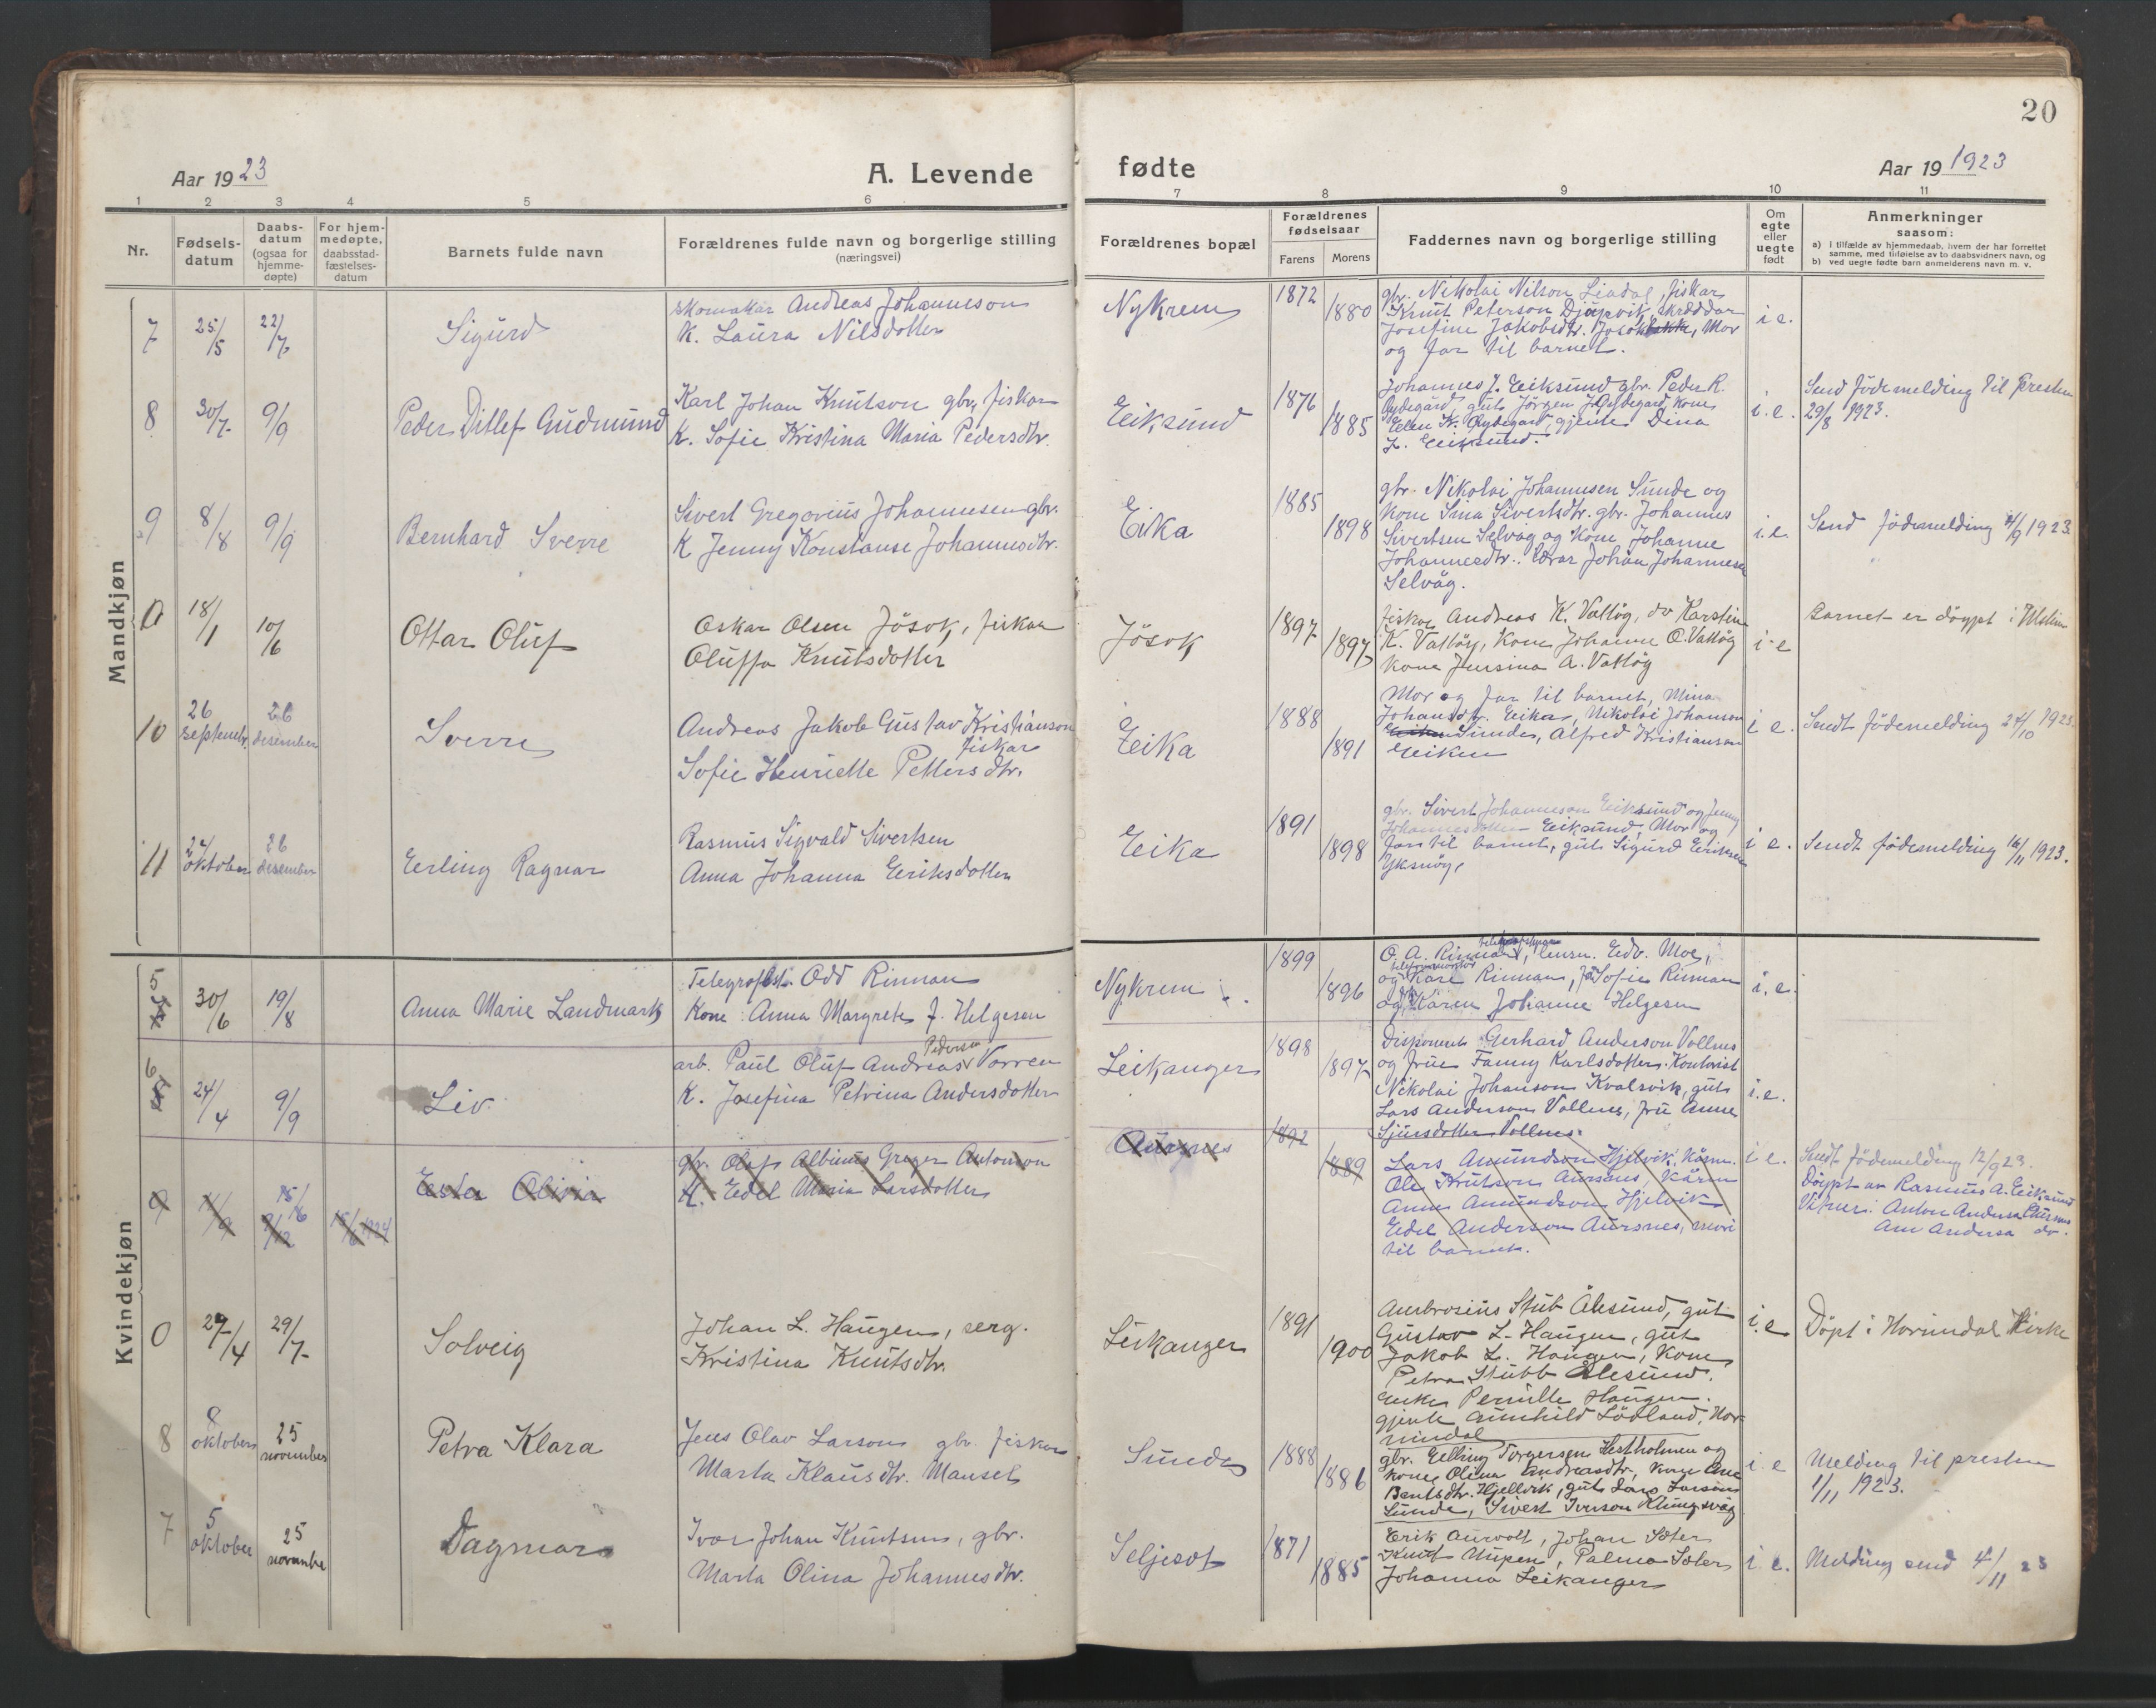 20
Aar 1923
A. Levende
fødte
Aar 19 1923
1 2 3 4 5 6 7 8 9 10 11
Nr.
Fødsels-
datum
Daabs-
datum
(ogsaa for
hjemme-
døpte)
For hjem-
medøpte,
daabsstad-
fæstelses-
datum
Barnets fulde navn
Forældrenes fulde navn og borgerlige stilling
(næringsvei)
Forældrenes bopæl
Forældrenes
fødselsaar
Farens
Morens
Faddernes navn og borgerlige stilling
Om
egte
eller
uegte
født
Anmerkninger
saasom:
a) i tilfælde av hjemmedaab, hvem der har forrettet
samme, med tilføielse av to daabsvidners navn, og
b) ved uegte fødte barn anmelderens navn m. v.
Mandkjøn
7
25/5
22/7
Sigurd
skomakar Andreas Johanneson
K. Laura Nilsdotter
Nykrem
1872
1880
gbr. Nikolai Nilson Lindal, fiskar
Knut Peterson Djupvik, skræddar
Josefine Jakobsdtr. Jösok, Mor
og far til barnet.
i e.
8
30/7
9/9
Peder Ditlef Gudmund
Karl Johan Knutson gbr, fiskar
K. Sofie Kristina Maria Pedersdtr.
Eiksund
1876
1885
Johannes J. Eiksund gbr. Peder R.
Øydegård, gut Jörgen J. Øydegård, Kone
Ellen K. Øydegård, gjente Dina
L. Eiksund.
i. e.
Send födemelding til presten
29/8 1923.
9
8/8
9/9
Bernhard Sverre
Sivert Gregorius Johannesen gbr.
K Jenny Konstanse Johannesdtr.
Eika
1885
1898
gbr. Nikolai Johannesen Sunde og
Kone Sina Sivertsdtr. gbr. Johannes
Sivertsen Selvåg og Kone Johanne
Johannesdtr. Lærar Johan Johannesen
Selvåg.
i. e.
Send födemelding 4/9 1923.
0
18/1
10/6
Ottar Oluf
Oskar Olsen Jösok, fiskar
Oluffa Knutsdotter
Jösok
1897
1897
fiskar Andreas K. Vattöy, do Karstein
K. Vattöy, Kone Johanne O. Vattöy
Kone Jensina A. Vattöy
i e
Barnet er döypt i Ulstein
10
26
september
26
desember
Sverre
Andreas Jakob Gustav Kristianson
fiskar
Sofie Henriette Pettersdtr.
Eika
1888
1891
Mor og far til barnet, Mina
Johansdtr. Eika, Nikolai Johanson
Sunde, Alfred Kristianson
Eiken
i e.
Sendt födemelding 24/10 1923.
11
24
oktober
26
desember
Erling Ragnar
Rasmus Sigvald Sivertsen
Anna Johanna Eriksdotter
Eika
1891
1898
gbr. Sivert Johanneson Eiksund og Jenny
Johannesdotter Eiksund, Mor og
far til barnet, gut Sigurd Eriksen
Yksnöy,
i e.
Sendt födemelding 16/11 1923.
Kvindekjøn
5
30/6
19/8
Anna Marie Landmark
Telegrafist. Odd Rinnan
Kone Anna Margrete J. Helgesen
Nykrem
1899
1896
O. A. Rinnan, lensm. Edv. Moe,
og Kåre Rinnan, fr. Sofie Rinnan
og Karen Johanne Helgesen
i. e.
6
24/4
9/9
Liv
Pederson
arb. Paul Oluf Andreas Vorren
K. Josefina Petrina Andersdotter
Leikanger
1898
1897
Disponent Gerhard Anderson Vollnes
og frue Fanny Karlsdotter. Kontorist
Nikolai Johanson Kvalsvik, gut
Lars Anderson Vollnes, fru Anne
Sjursdotter Vollnes.
i. e.
7
11/9
15/6
15/6 1924
Ester Olivia
gbr. Olaf Albinus Greger Antonson
K. Edel Maria Larsdotter
Aursnes
1892
1889
Lars Amundson Hjelvik, Kårm.
Ole Knutson Aursnes, Kårm
Anne Amundson Hjelvik
Edel Anderson Aursnes, mori
til barnet.
i e.
Sendt födemelding 12/9 23.
Döypt av Rasmus A. Eiksund
Vitner: Anton Andersa Aursnes
Ane Andersa do.
0
29/4
29/7
Solveig
Johan L. Haugen, serg.
Kristina Knutsdtr.
Leikanger
1891
1900
Ambrosius Stub Ålesund, gut
Gustav L. Haugen, gut
Jakob L. Haugen, Kone
Petra Stubb Ålesund.
enke Pernille Haugen.
gjente Gunhild Lödland, Hor-
nindal
i. e
Döpt i Hornindal Kirke
8
8
oktober
25
november
Petra Klara
Jens Olav Larson gbr. fiskar
Marta Klausdtr. Manset
Sunde
1888
1886
gbr. Elling Torgersen Hestholmen og
Kone Olina Andreasdtr, Kone Ane
Bentsdtr. Hjellvik, gut Lars Larson
Sunde, Sivert Iverson Klungsvåg
i e
Melding til presten
1/11 1923.
7
5
oktober
25
november
Dagmar
Ivar Johan Knutsen, gbr.
Marta Olina Johannesdtr.
Seljeset
1871
1885
Erik Aurvoll, Johan Sæter
Knut Nupen, Palma Sæter
Johanna Leikanger
i e.
Melding send 4/11 23